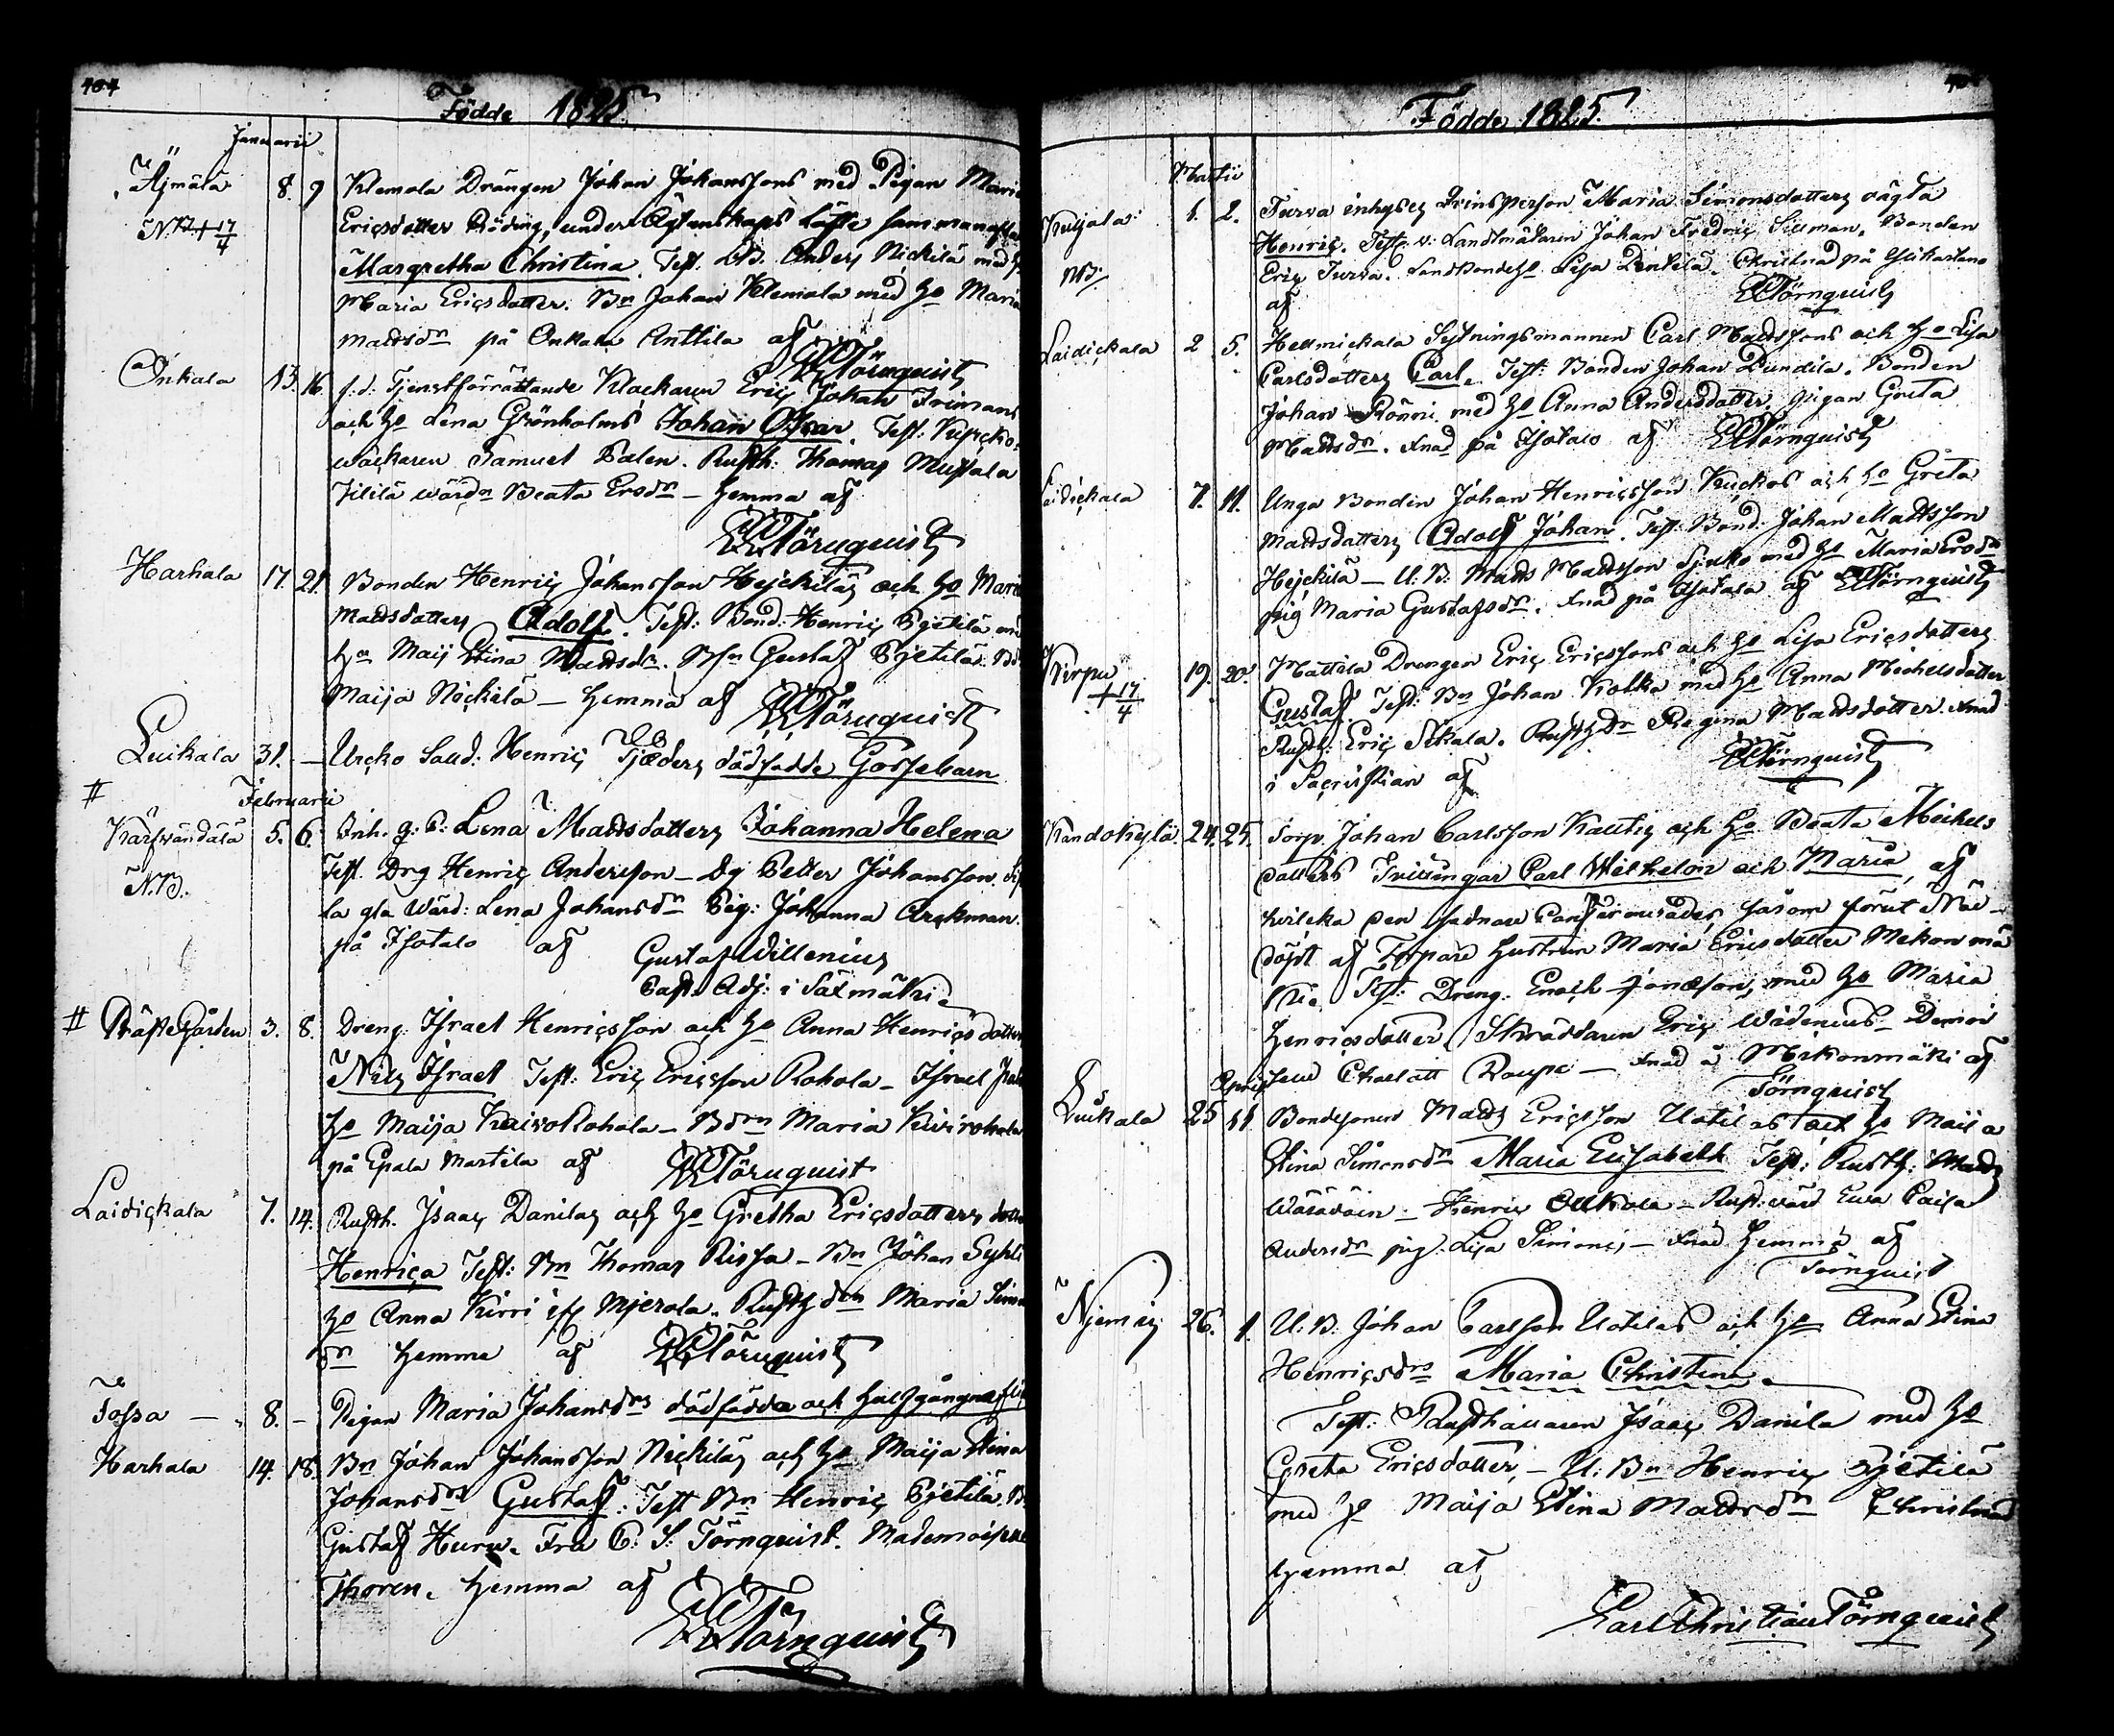 404
Födde 1825.
Januarii
Äjmälä 8. 9 Klemola Drängen Johan Johanssons med Pigan Maria
N.B. + 17/4 Ericsdotter Röding, under Ägtenskaps Löfte sammanaflade
Margretha Christina. Test. Anders Nickilä med
Maria Ericsdotter. Bn Johan Klemola med ho Maria
Mattsdr på Onkala Anttila af
CCTörnquist
Onkala 13. 16. f.d. Tjenstförrättande Klockaren Eric Johan Frimans
och ho Lena Grönholms Johan Oscar. Test: Kyrcko-
wäcktaren Samuel Palen. Rusth: Thomas Mustala
Jililä wärdn Beata Ersdr – hemma af
CCTörnquist
Harhala 17. 21. Bonden Henric Johansson Hejckiläs och ho Maria
Mattsdotters Adolf. Test: Bond: Henric Pjetilä med
ho Maij Stina Mattsdr. Bsn Gustaf Pjetilä.
Maija Nickilä – hemma af CCTörnquist
Luikala 31. – Urcko Sold: Henric Tjäders dödfödde Gossebarn
# Februarii
Karfwändälä 5. 6. Inh. q: P: Lena Mattsdotters Johanna Helena
N.B. Test. Drg Henric Andersson – Dg Petter Johansson.
la gla wärd: Lena Johansdr Pig: Johanna Arckman.
på Isotalo af Gustaf Willenius
Past: Adj: i Säxmäki
# PrästeGården 3. 8. Dreng: Israel Henricsson och ho Anna Henricsdotters
Nils Israel Test: Eric Ericsson Rohola – Israel
ho Maija Kaiwo Rohola – Bdrn Maria Kiwirohola
på Epala Martila af CCTörnquist
Laidickala 7. 14. Rusth. Isaac Danilas och ho Gretha Ericsdotters dotter
Henrica Test: Bn Thomas Rissa – Bn Johan Syhli
ho Anna Kirri Mjerola. Rusthdtn Maria Simons
dr hemma af CCTörnquist
Tossa – 8. – Pigan Maria Johansdrs dödfödda och halfgångna
Harhala 14. 18. Bn Johan Johansson Nickiläs och ho Maija Stina
Johansdrs Gustaf. Test Bn Henric Pjetilä.
Gustaf Huru. Fru C: S: Törnquist. Mademoiselle
Thoren. hemma af
CCTörnquist
Födde 1825.
Martii
Kuljala 1. 2. Turva inhyses Qvinsperson Maria Simonsdotters oägta
NB. Henric. Test: v: Landtmätaren Johan Fredric Silman. Bonden
Eric Turva. Landbonde ho Lisa Pentilä. Christnad på
af CCTörnquist
Laidickala 2 5. Hellmickala Sytningsmannen Carl Mattssons och ho Lisa
Carlsdotters Carl. Test: Bonden Johan Dundila. Bonden
Johan Rönni med ho Anna Andersdotter. pigan Greta
Mattsdr. Xnad på Isotalo af CCTörnquist
Laidickala 7. 11. Unga Bonden Johan Henricsson Kuckos och ho Greta
Mattsdotters Adolf Johan. Test: Bond: Johan Mattsson
Hejckilä – U: B: Matts Mattsson Syuko med ho Maria Ersdr
pig Maria Gustafsdr. Xnad på Isotalo af CCTörnquist
Kirpu 19. 20. Mattila Drengen Eric Ericssons och ho Lisa Ericsdotters
+ 17/4 Gustaf. Test: Bn Johan Kolkka med ho Anna Michelsdotter
Rusth: Eric Sikala. Rusthdr Regina Mattsdotter. Xnad
i Sacristian af CCTörnquist
Kandokylä 24. 25. Torp. Johan Carlsson Kautig och ho Beata Michels
dotters Twillingar Carl Wilhelm och Maria, af
hwilcka den sednare såsom förut Nöd-
döpt af Torpare Hustrun Maria Ericsdotter Mekonmä
ki. Test: Dreng: Enoch Jonæson, med ho Maria
Henricsdotter. Skräddaren Eric Widenius – Demoi
sell Charlott Roupe – Xnad å Mekonmäki af
Törnquist
April
Luikala 25 11 Bondsonen Matts Ericsson Uotilas och ho Maija
Stina Simonsdr Maria Elisabeth Test: Rusth: Matts
Wäräväin – Henric Ollkola – Rust:wärd Ewa Caisa
Andersdr pig: Lisa Simons – Xnad hemma af
Törnquist
Njemis 26. 1. U: B: Johan Carlsson Uotilas och ho Anna Stina
Henricsdrs Maria Christina.
Test: Rusthållaren Isaac Danila med ho
Greta Ericsdotter – U: Bn Henric Pjetilä
med ho Maija Stina Mattsdr Christnad
hemma af
Carl Christian Törnquist